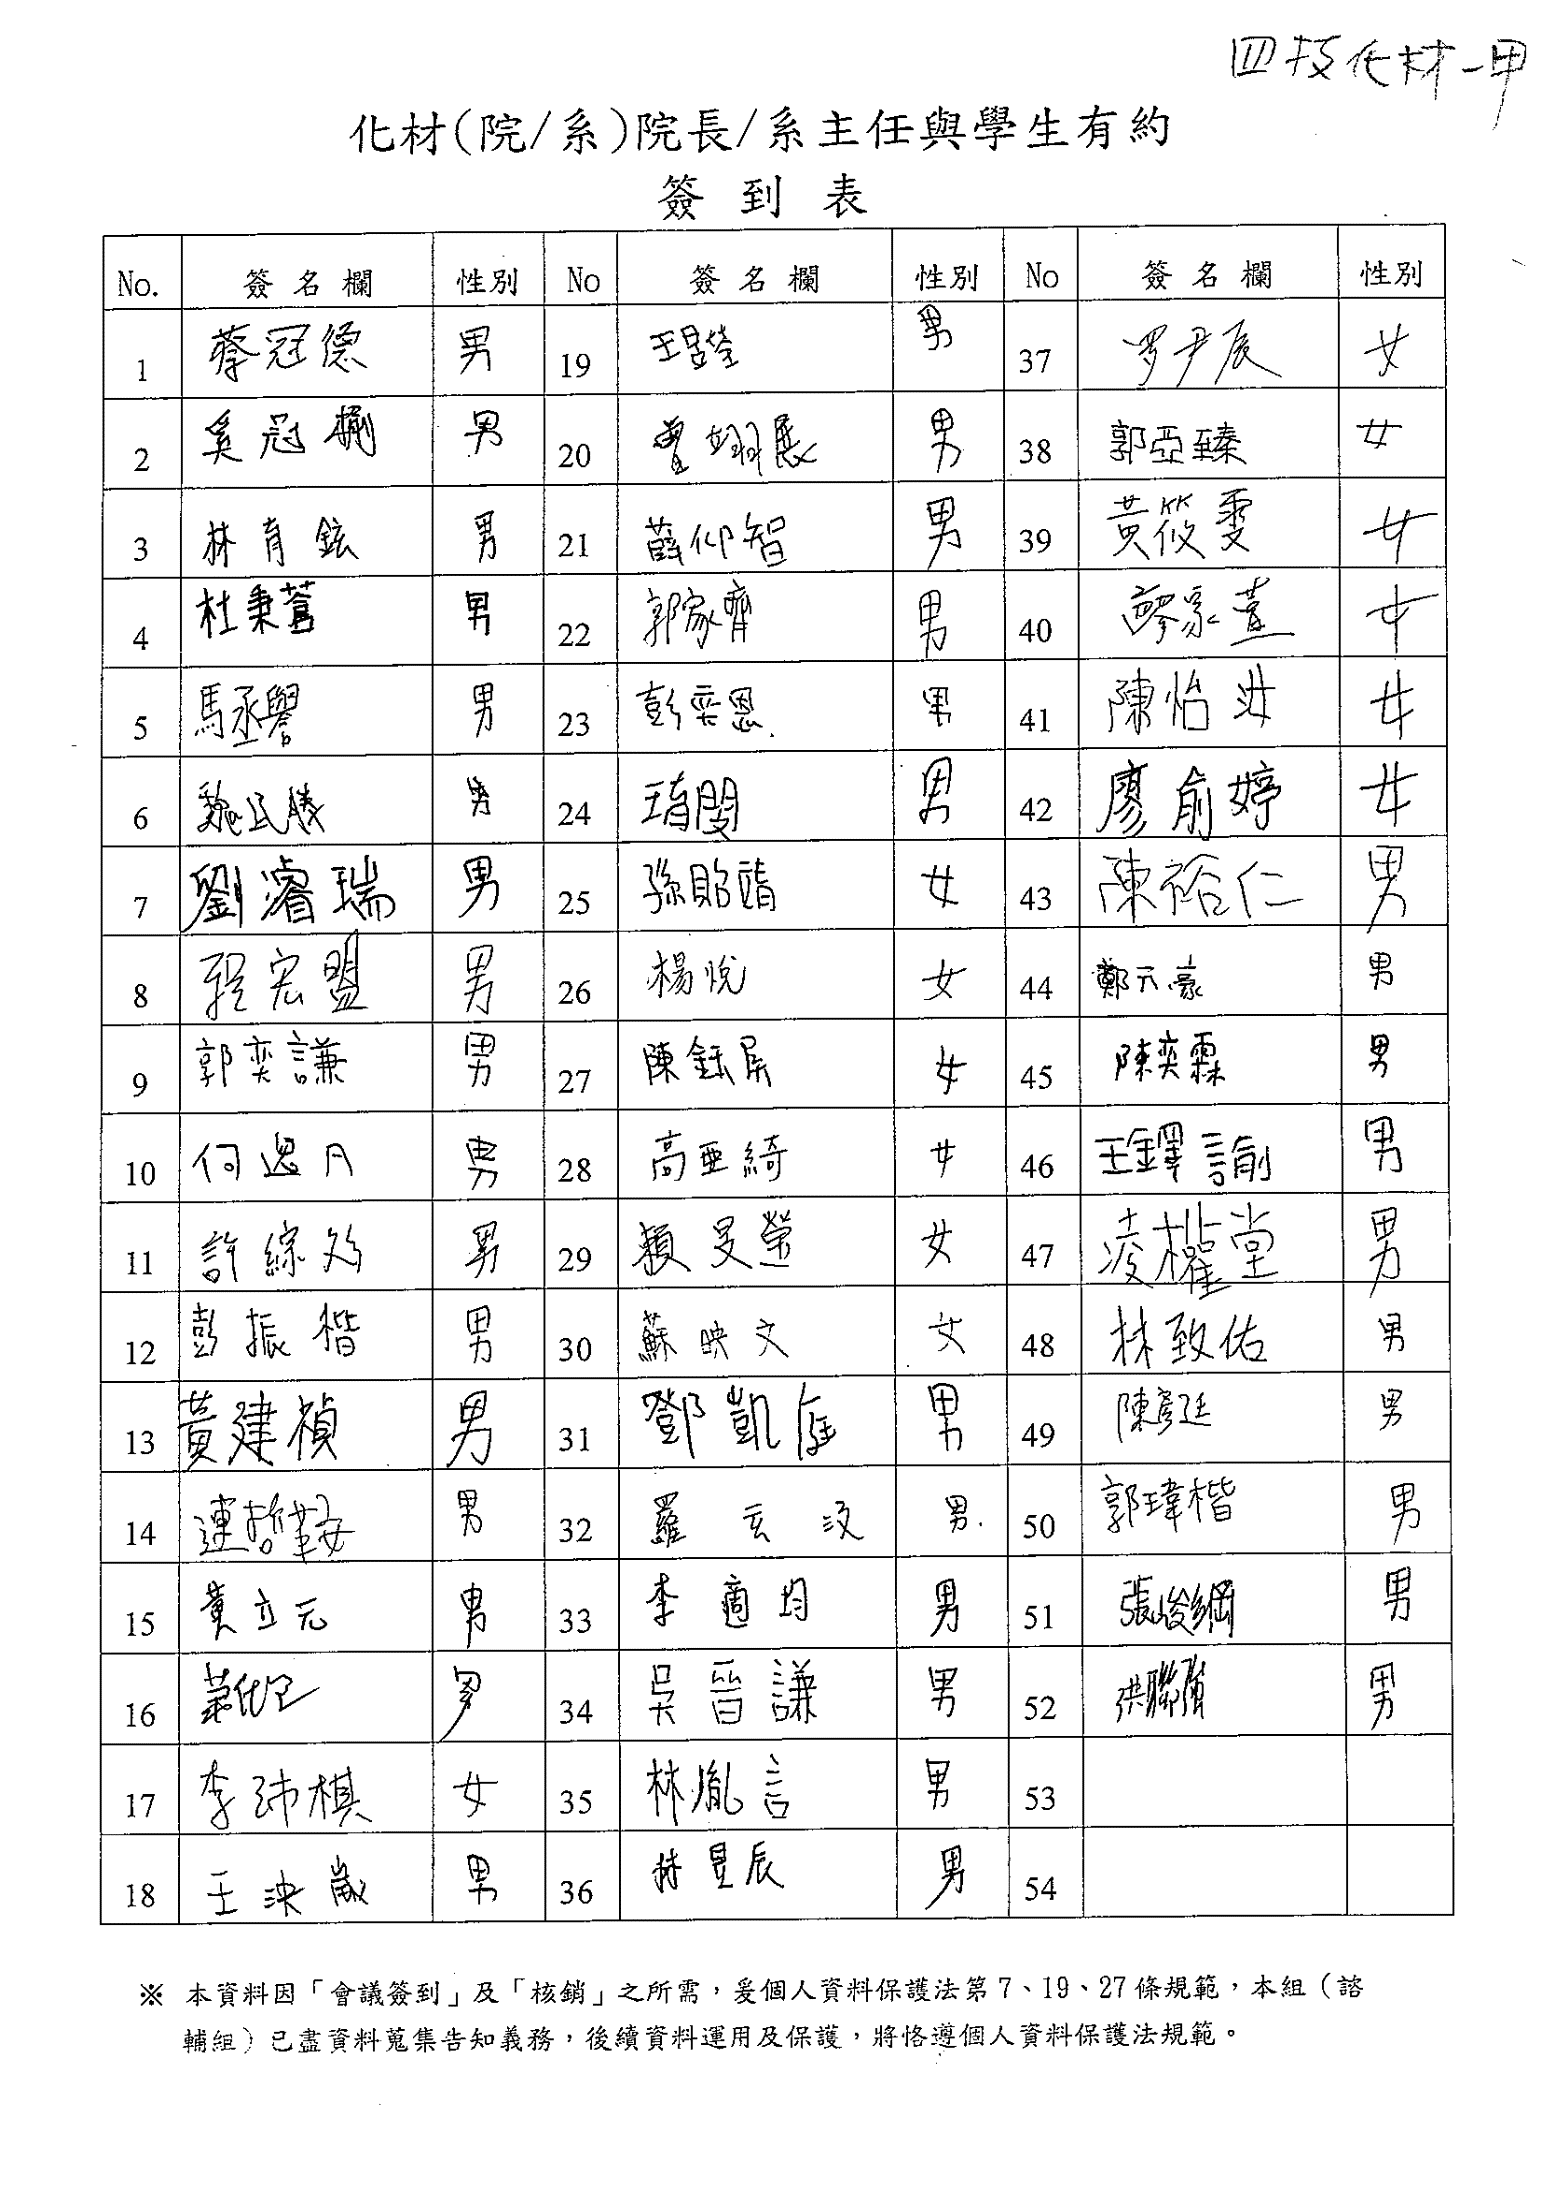 四技化材一甲
化材(院/系)院長/系主任與學生有約
簽到表
No. 簽名欄 性別 No 簽名欄 性別 No 簽名欄 性別
1 蔡冠德 男 19 王 男 37 罗尹辰 女
2 奚冠 男 20 曹翊展 男 38 郭亞臻 女
3 林育鉉 男 21 薛仰智 男 39 黃筱雯 女
4 杜秉 男 22 郭家齊 男 40 廖家萱 女
5 馬丞譽 男 23 彭奕恩 男 41 陳怡汝 女
6 魏民勝 男 24 男 42 廖俞婷 女
7 劉濬瑞 男 25 孫貽靖 女 43 陳裕仁 男
8 程宏盟 男 26 楊悅 女 44 鄭元豪 男
9 郭奕謙 男 27 陳鈺屏 女 45 陳奕霖 男
10 何 男 28 高亜綺 女 46 王鐸諭 男
11 許綜 男 29 賴旻瑩 女 47 凌權堂 男
12 彭振楷 男 30 蘇映文 女 48 林致佑 男
13 黃建禎 男 31 鄧凱庭 男 49 陳彥廷 男
14 連哲 男 32 羅玄汶 男 50 郭瑋楷 男
15 黃立元 男 33 李適均 男 51 張峻綱 男
16 男 34 吳晉謙 男 52 洪聯 男
17 李沛棋 女 35 林胤言 男 53
18 王 男 36 林昱辰 男 54
※ 本資料因「會議簽到」及「核銷」之所需，爰個人資料保護法第7、19、27條規範，本組（諮
輔組）已盡資料蒐集告知義務，後續資料運用及保護，將恪遵個人資料保護法規範。